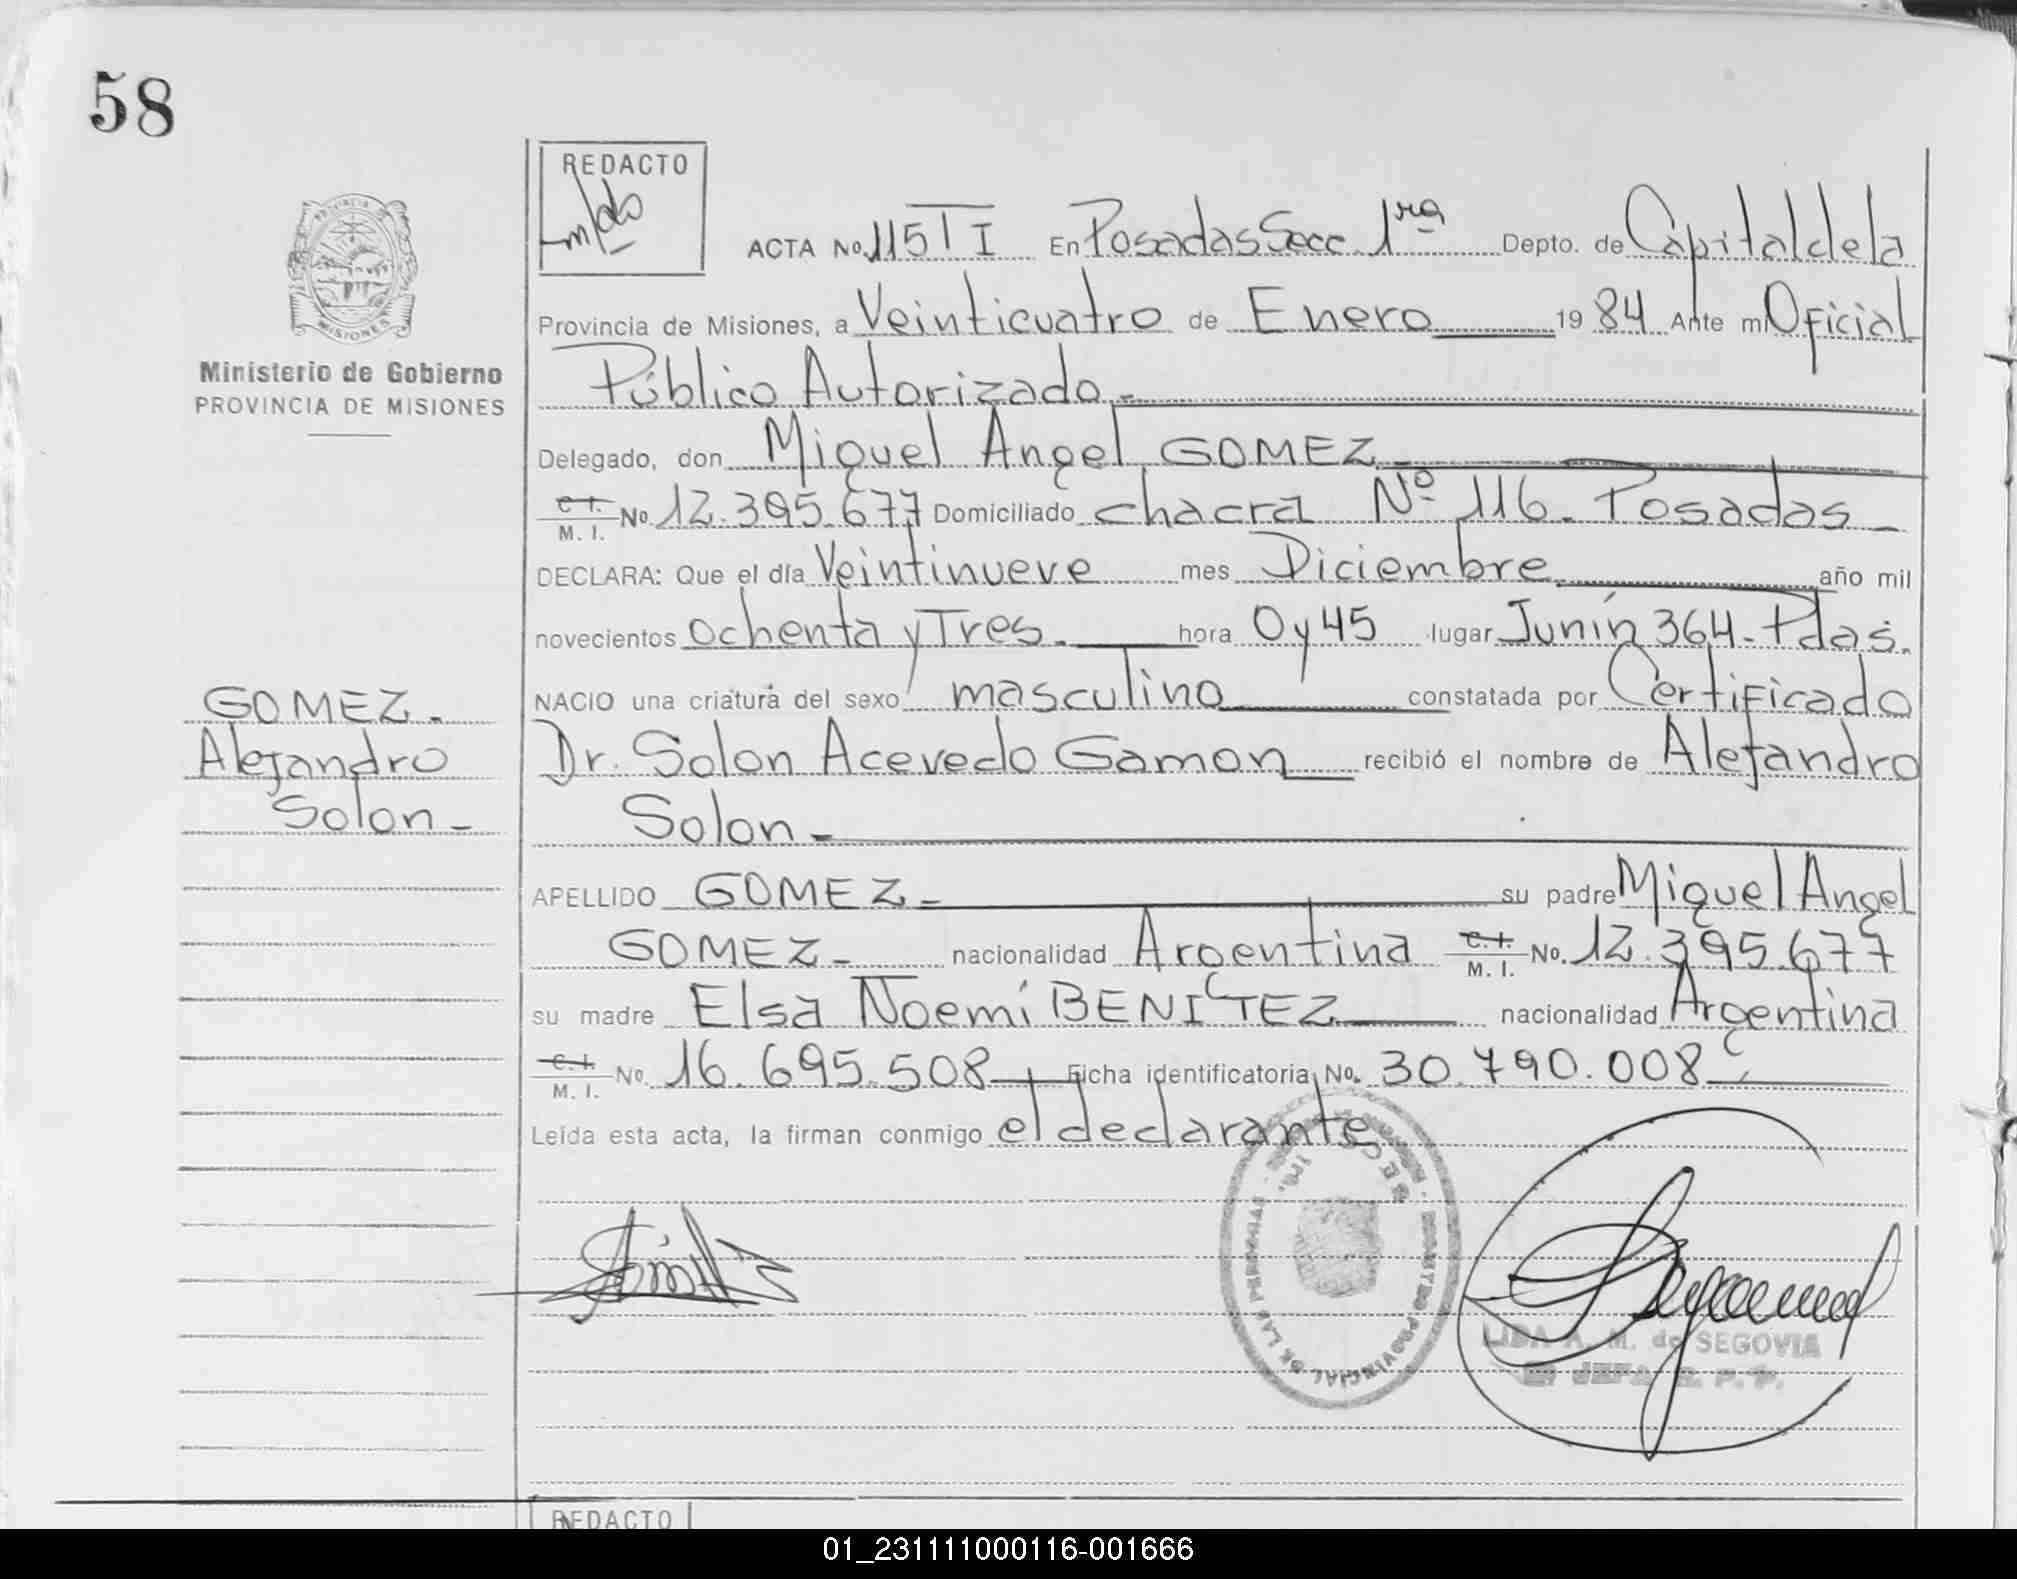 58
REDACTO
PROVINCIA DE
MISIONES
Ministerio de Gobierno
PROVINCIA DE MISIONES
ACTA No. 115 T I En Posadas Secc. 1ra Depto. de Capital de la
Provincia de Misiones, a Veinticuatro de Enero 19 84 Ante mi Oficial
Público Autorizado.-
Delegado, don Miguel Angel GOMEZ-
C. I. M. I. No. 12.395.677 Domiciliado chacra Nº 116- Posadas-
DECLARA: Que el día Veintinueve mes Diciembre año mil
novecientos ochenta y Tres.- hora 0 y 45 lugar Junín 364- Pdas.
NACIO una criatura del sexo masculino constatada por Certificado
Dr. Solon Acevedo Gamon recibió el nombre de Alejandro
Solon-
GOMEZ-
Alejandro
Solon-
APELLIDO GOMEZ- su padre Miguel Angel
GOMEZ- nacionalidad Argentina C. I. M. I. No. 12.395.677
su madre Elsa Noemí BENITEZ nacionalidad Argentina
C. I. M. I. No. 16.695.508 Ficha identificatoria No. 30.790.008
Leída esta acta, la firman conmigo el declarante
PROVINCIAL DE LAS PERSONAS
LIDA A. M. de SEGOVIA
JEFA R. P. P.
REDACTO
01_231111000116-001666